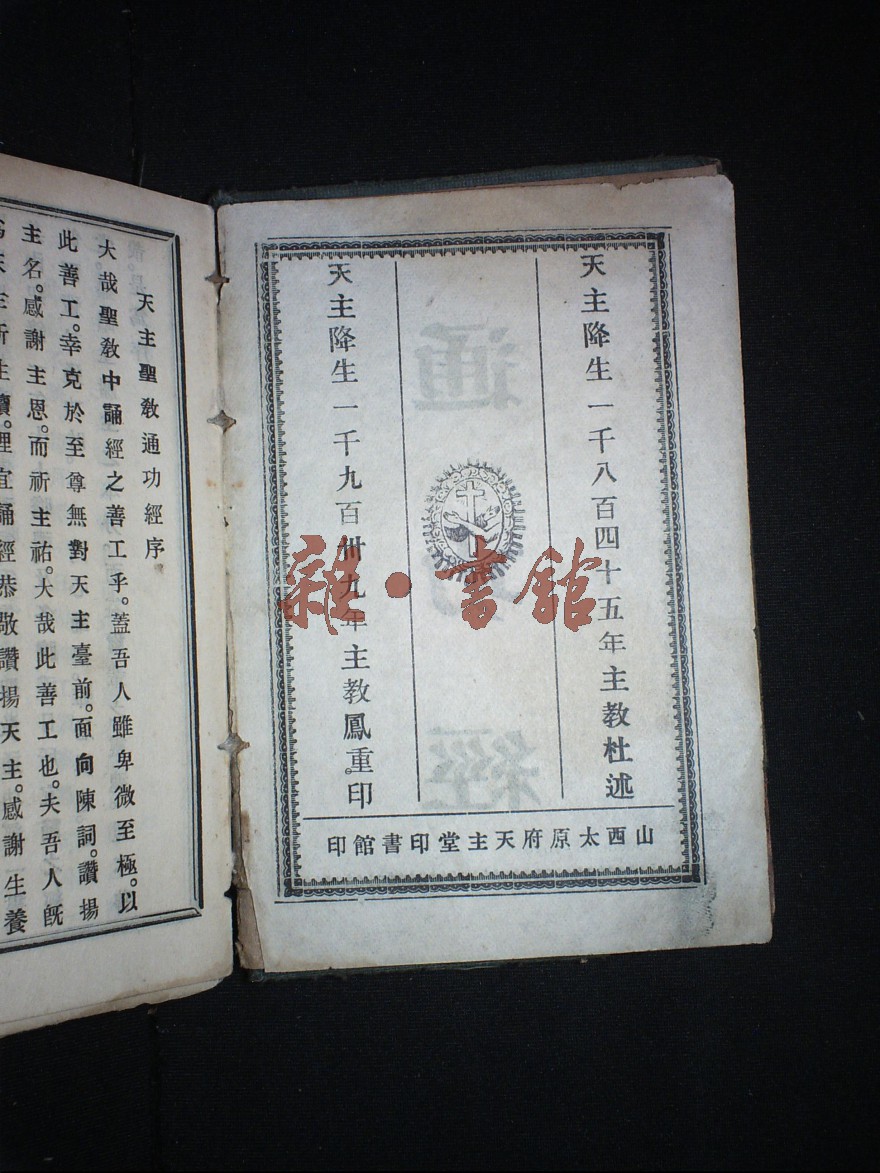 天主降生一千八百四十五年主教杜述
通功經
天主降生一千九百卅九年主教鳳重印
山西太原府天主堂印書館印
雜·書館
天主聖敎通功經序
大哉聖敎中誦經之善工乎。蓋吾人雖卑微至極。以
此善工。幸克於至尊無對天主臺前。面向陳詞。讚揚
主名。感謝主恩。而祈主祐。大哉此善工也。夫吾人旣
主所生贖。理宜誦經恭敬讚揚天主。感謝生養